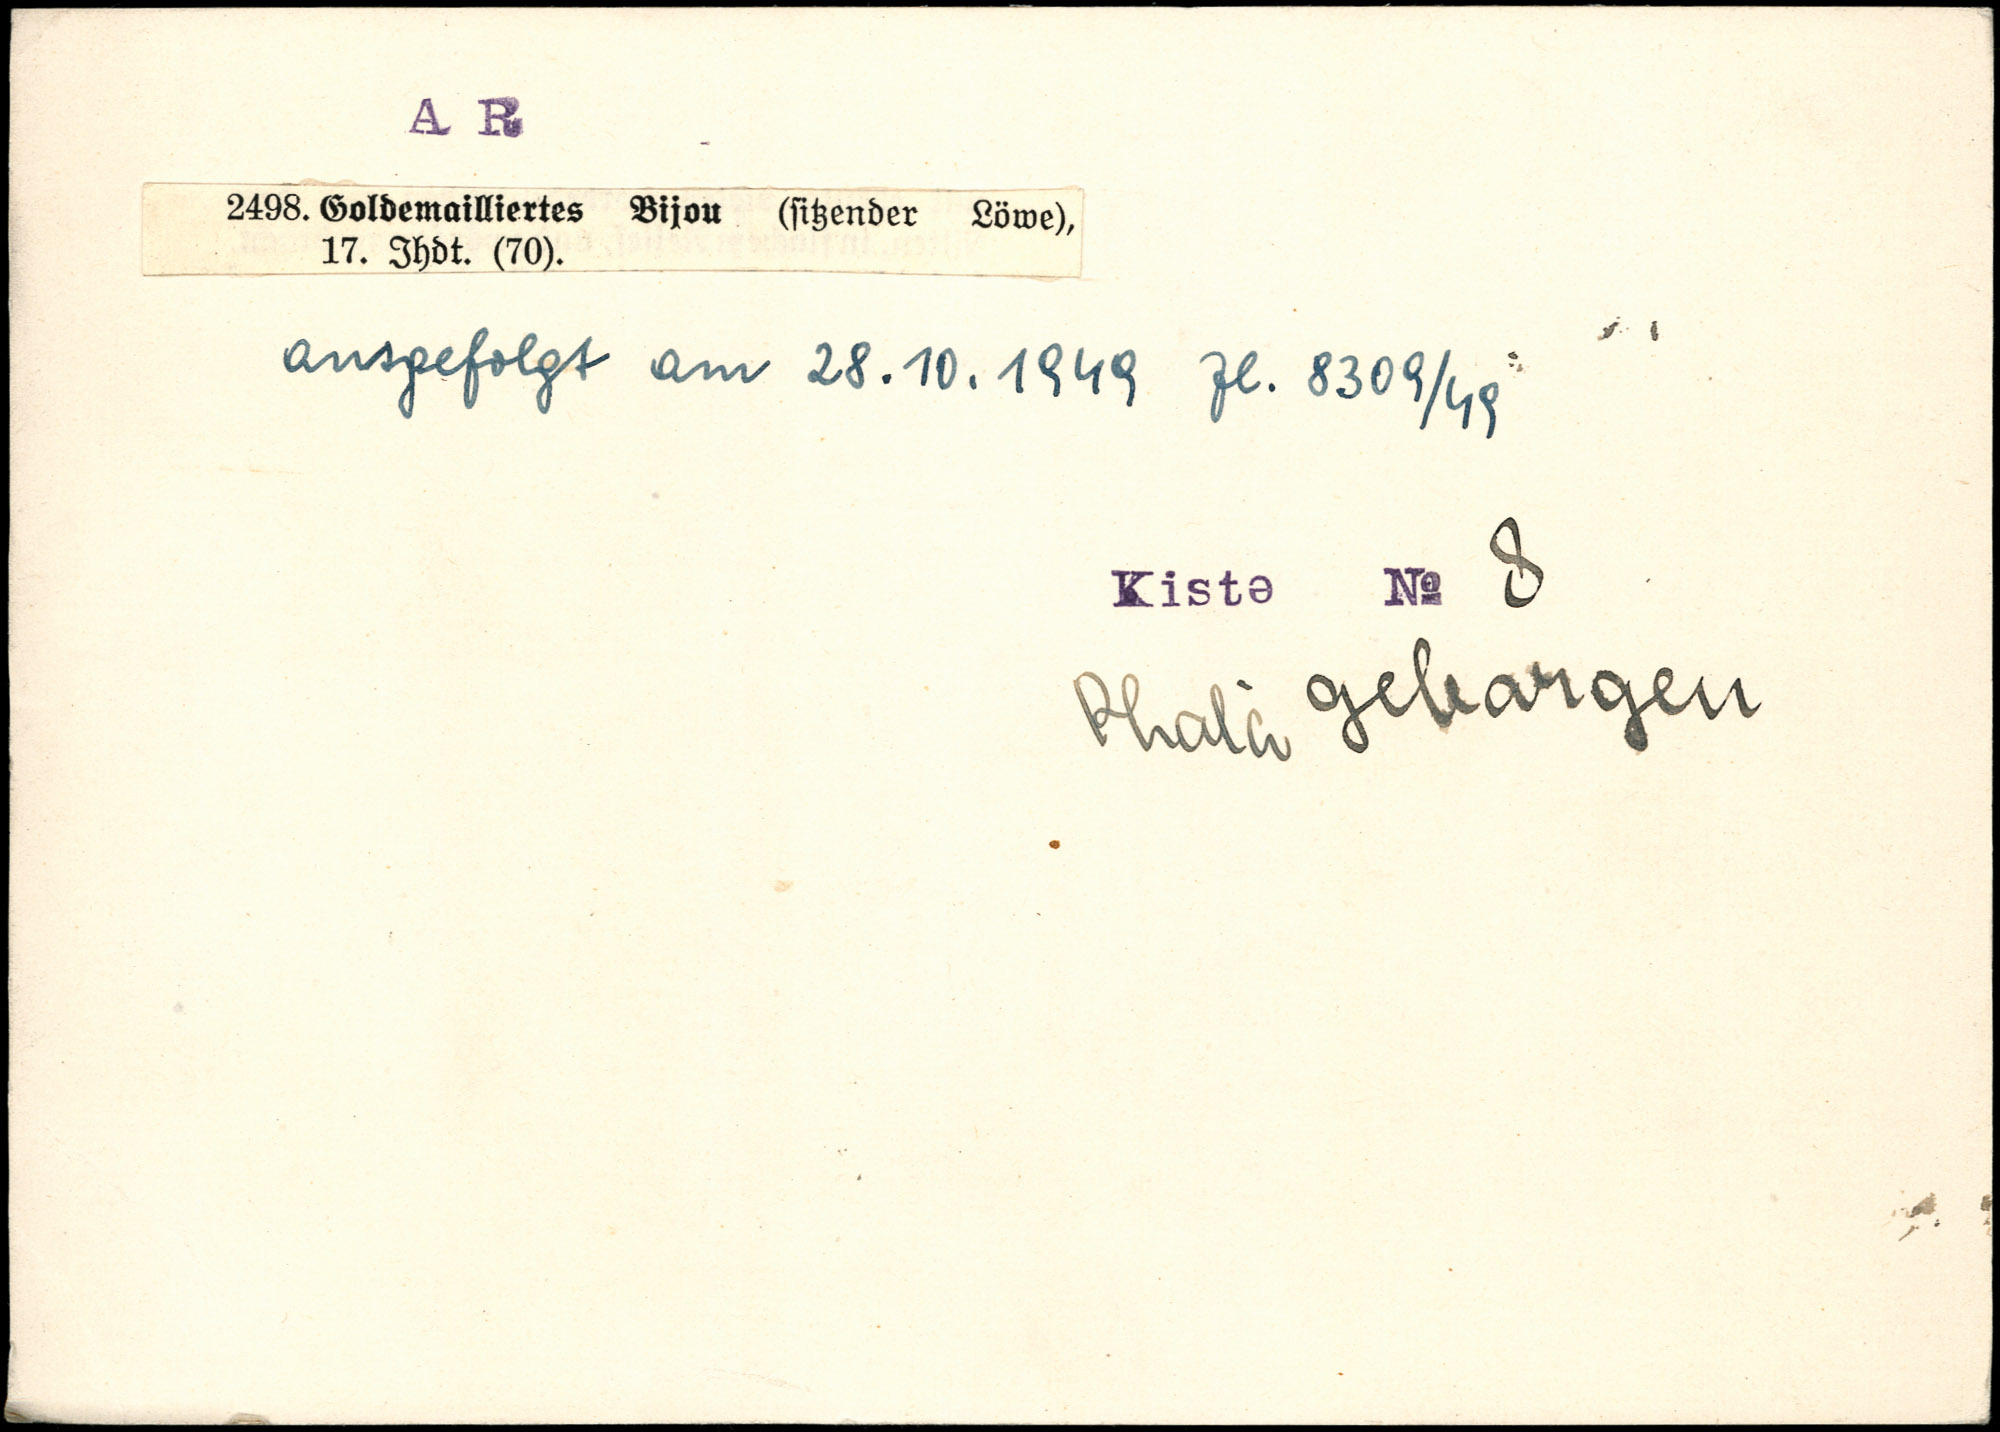 A R
2498. Goldemailliertes Bijou (sitzender Löwe),
17. Jhdt. (70).
ausgefolgt am 28.10.1949 Zl. 8309/49
Kiste № 8
geborgen